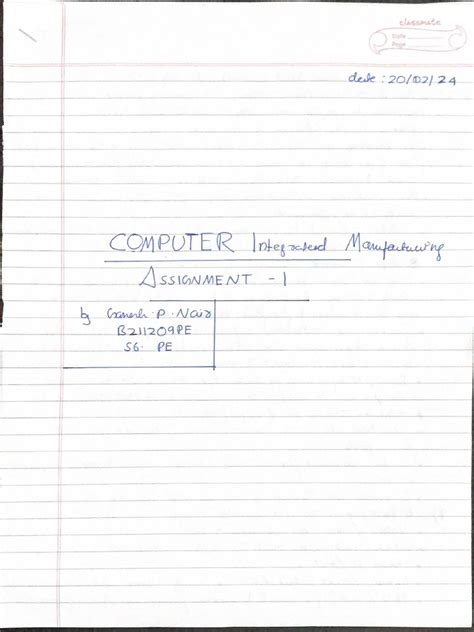 classmate
Date
Page
date : 20/02/24
COMPUTER Integrated Manufacturing
ASSIGNMENT - 1
by Ganesh . P . Nair
B211209PE
S6. PE